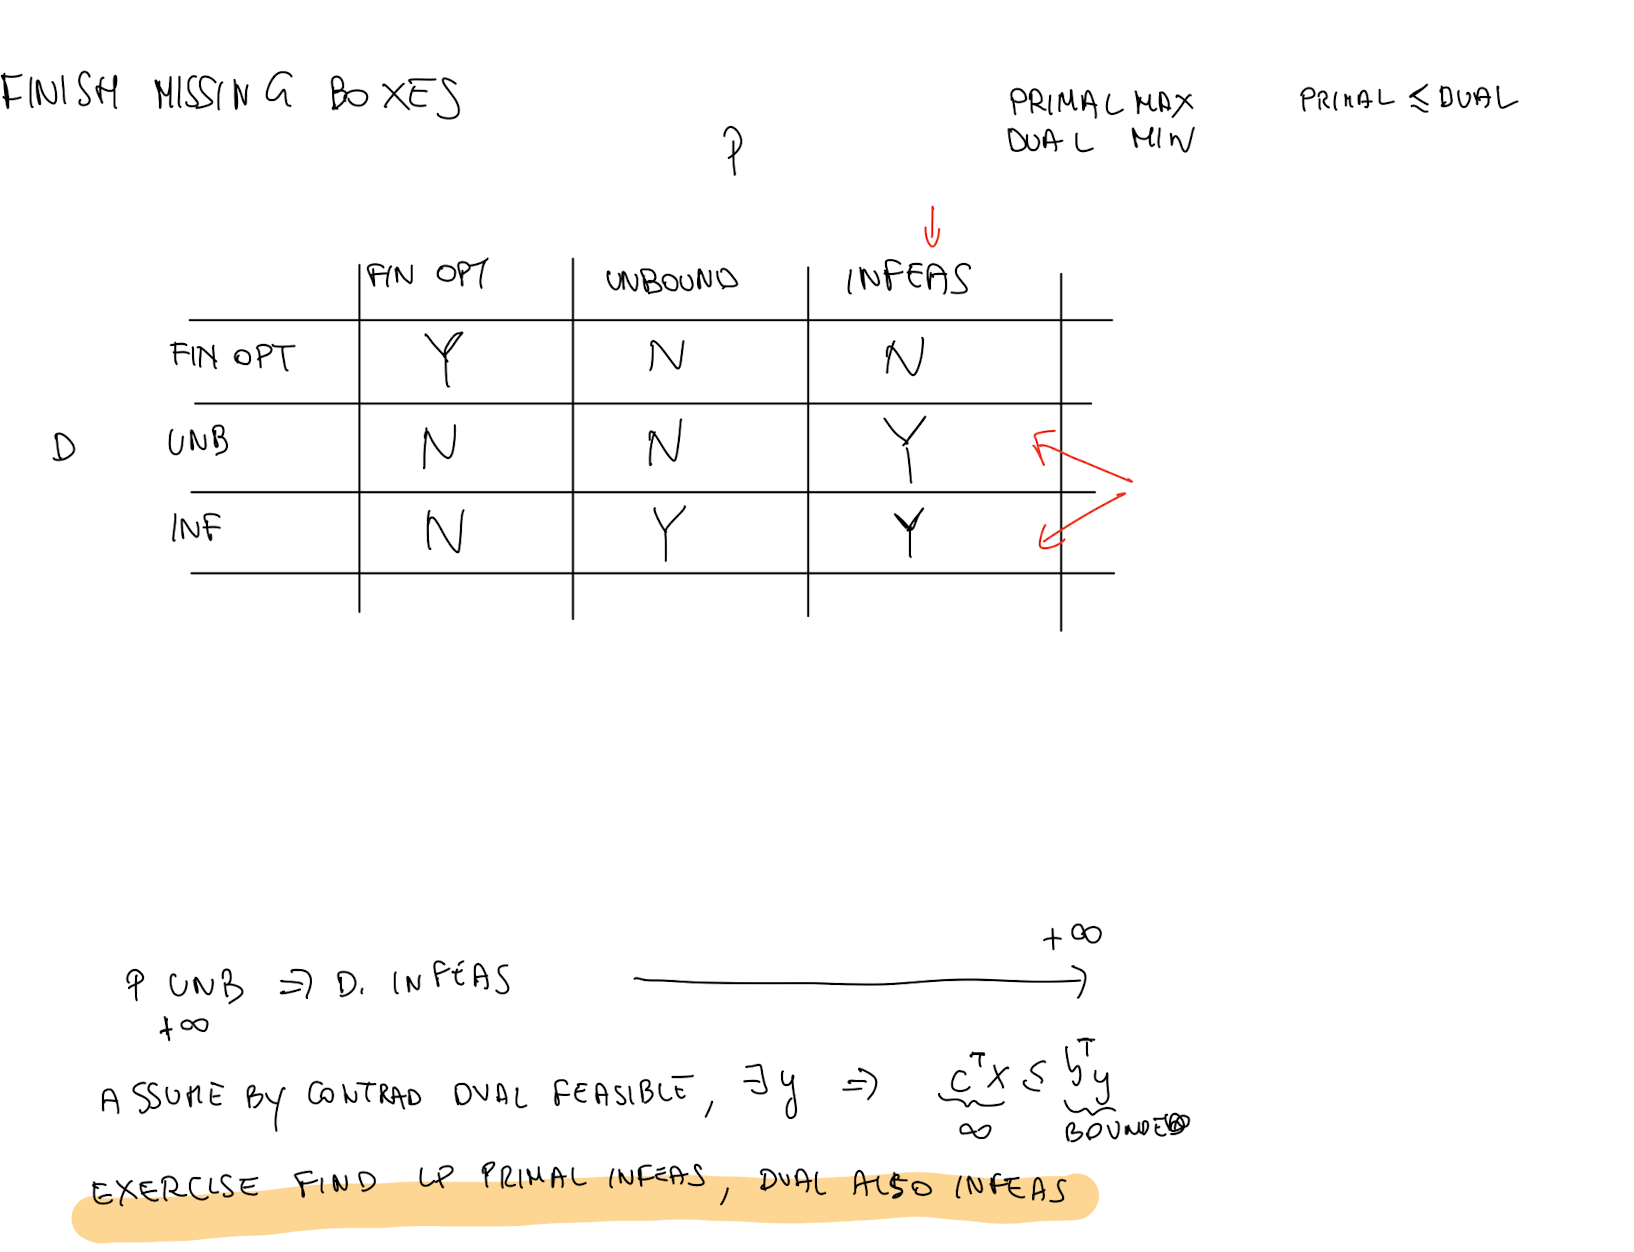 FINISH MISSING BOXES
PRIMAL MAX PRIMAL ≤ DUAL
DUAL MIN
P
FIN OPT UNBOUND INFEAS
FIN OPT Y N N
D UNB N N Y
INF N Y Y
+∞
P UNB ⇒ D. INFEAS
+∞
ASSUME BY CONTRAD DUAL FEASIBLE, ∃y ⇒ cᵀx ≤ bᵀy
∞ BOUNDED
EXERCISE FIND LP PRIMAL INFEAS, DUAL ALSO INFEAS